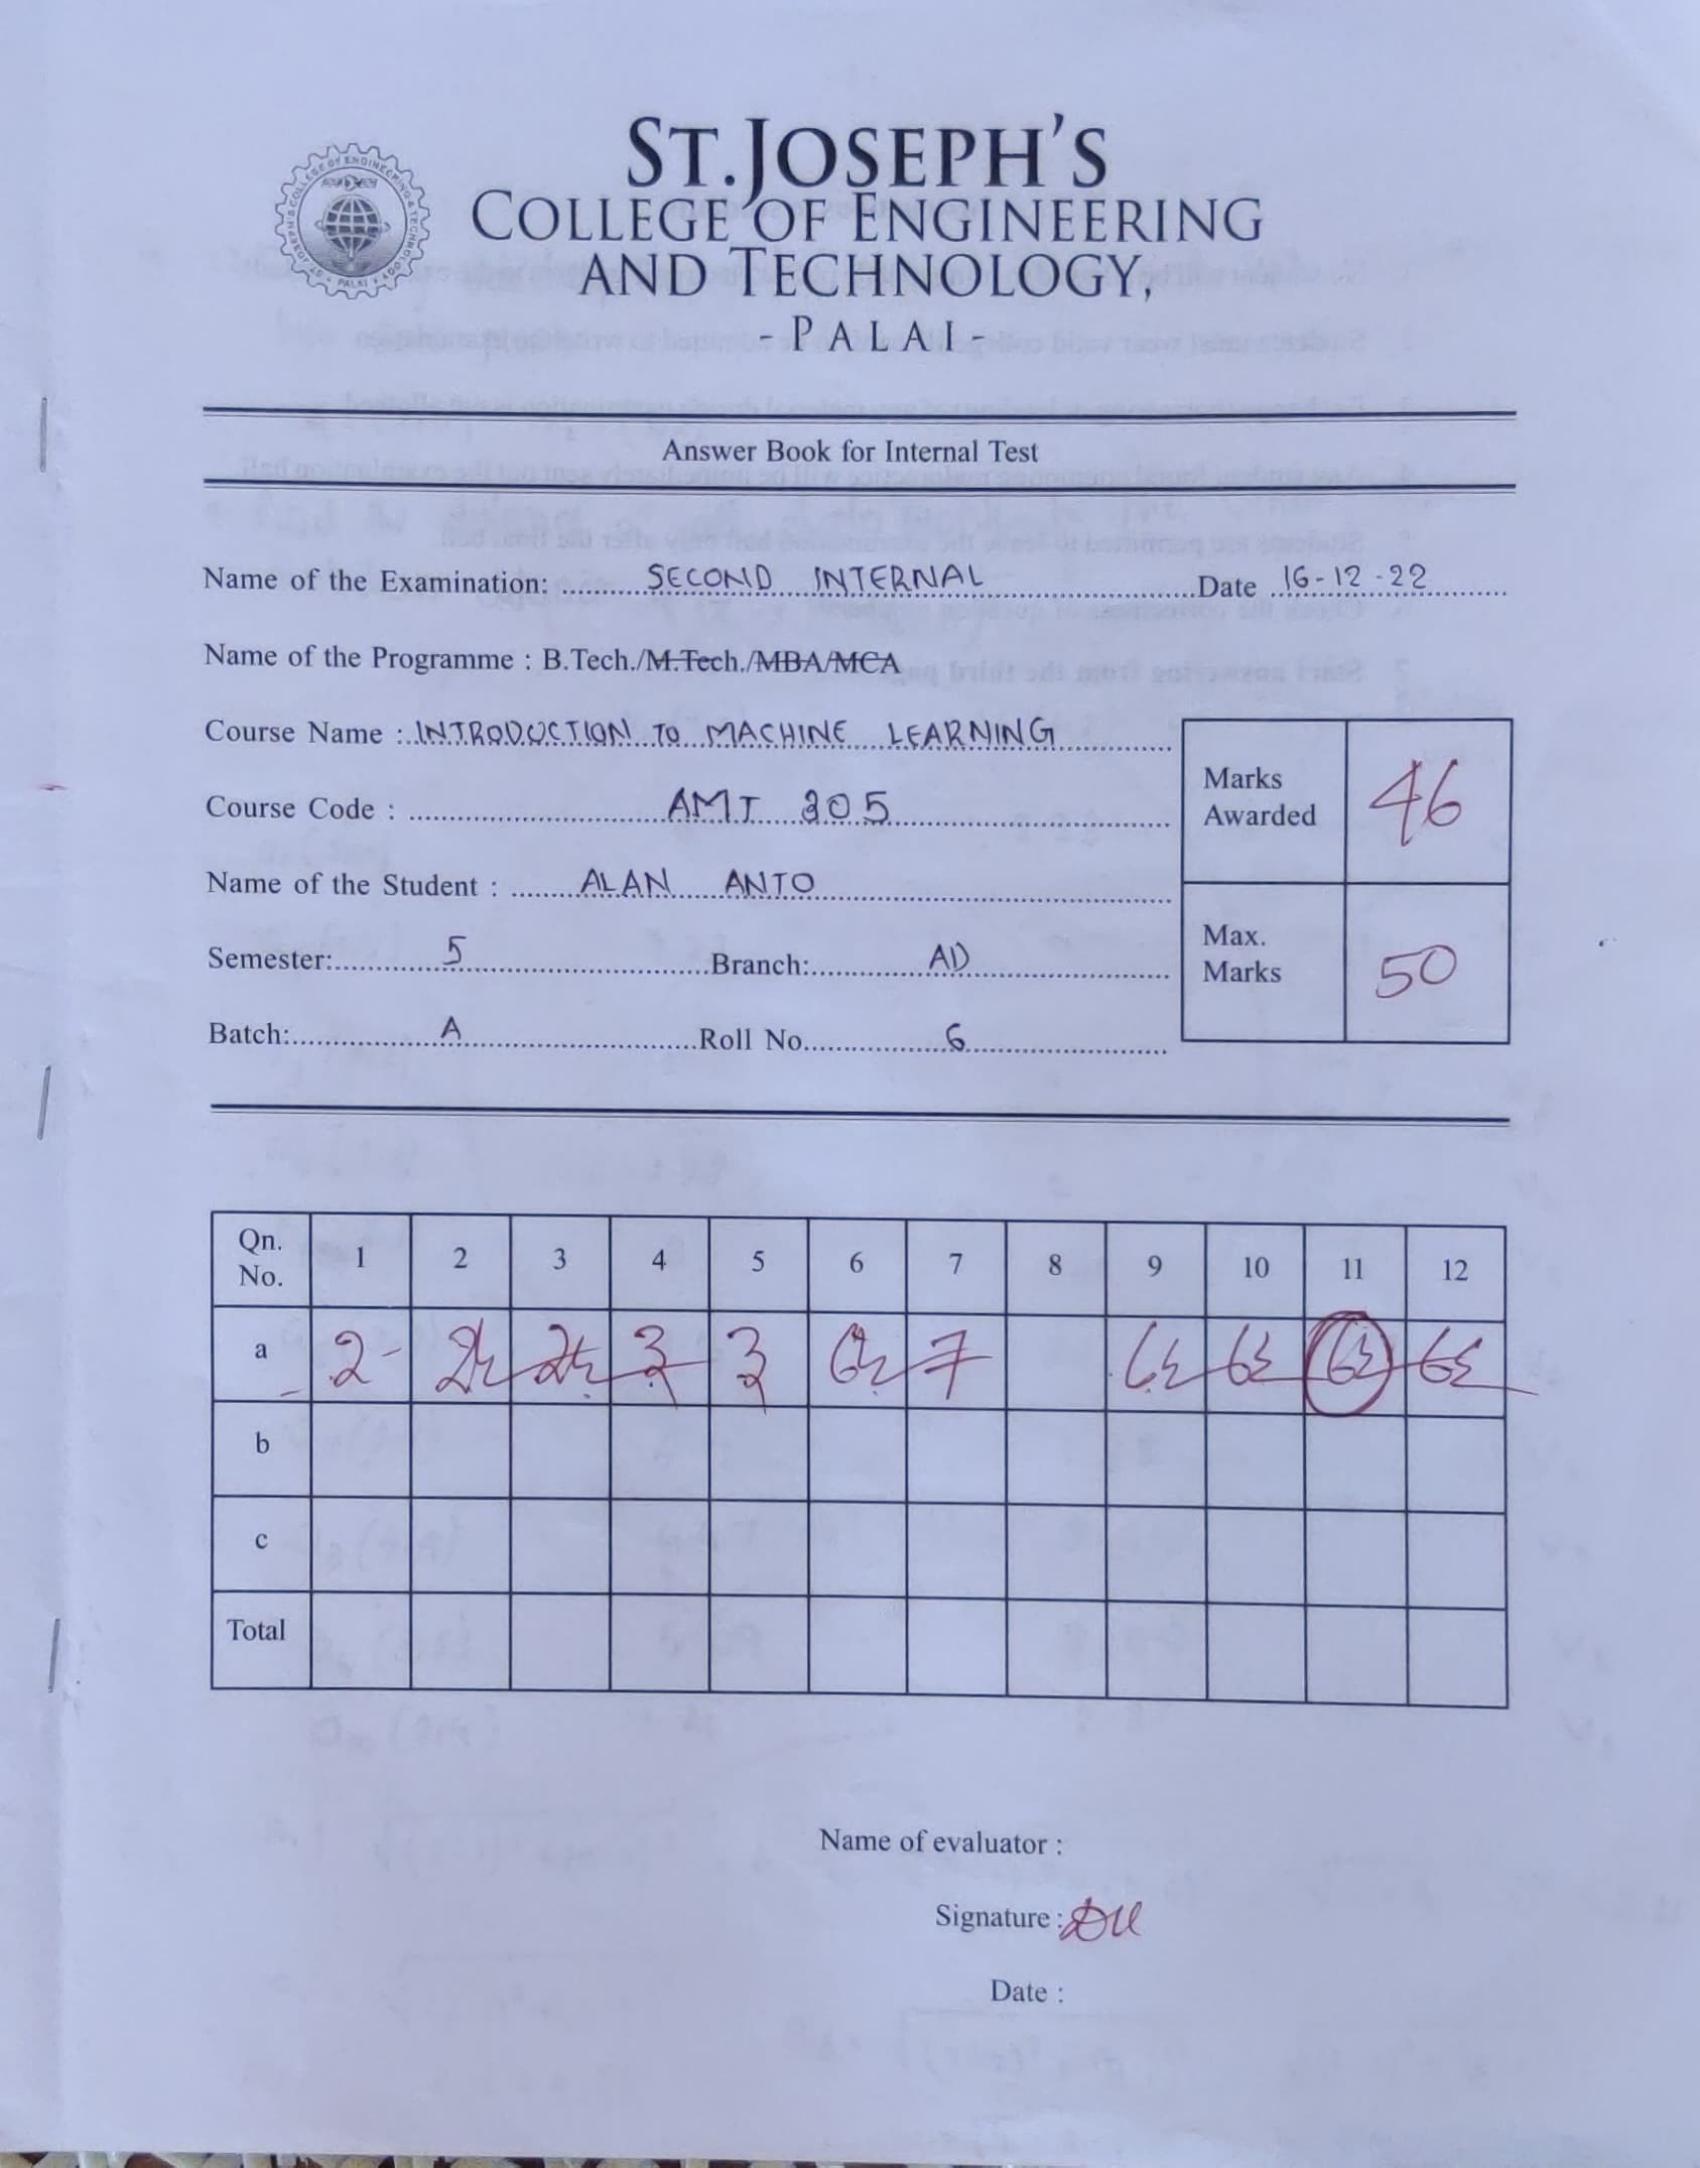 ST. JOSEPH'S
COLLEGE OF ENGINEERING
AND TECHNOLOGY,
- PALAI -
Answer Book for Internal Test
Name of the Examination: SECOND INTERNAL Date 16-12-22
Name of the Programme : B.Tech./M.Tech./MBA/MCA
Course Name : INTRODUCTION TO MACHINE LEARNING
Course Code : AMT 305
Name of the Student : ALAN ANTO
Semester: 5 Branch: AD
Batch: A Roll No. 6
Marks Awarded 46
Max. Marks 50
Qn. No. 1 2 3 4 5 6 7 8 9 10 11 12
a 2 2½ 2½ 3 3 6½ 7 6½ 6½ 6½ 6½
b
c
Total
Name of evaluator :
Signature :
Date :